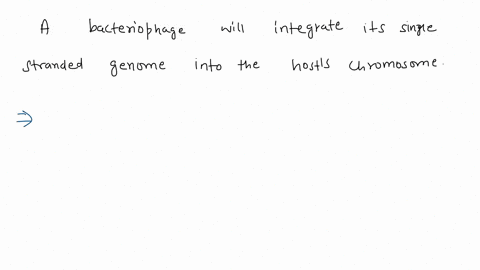 A bacteriophage will integrate its single
stranded genome into the host's chromosome.
⇒